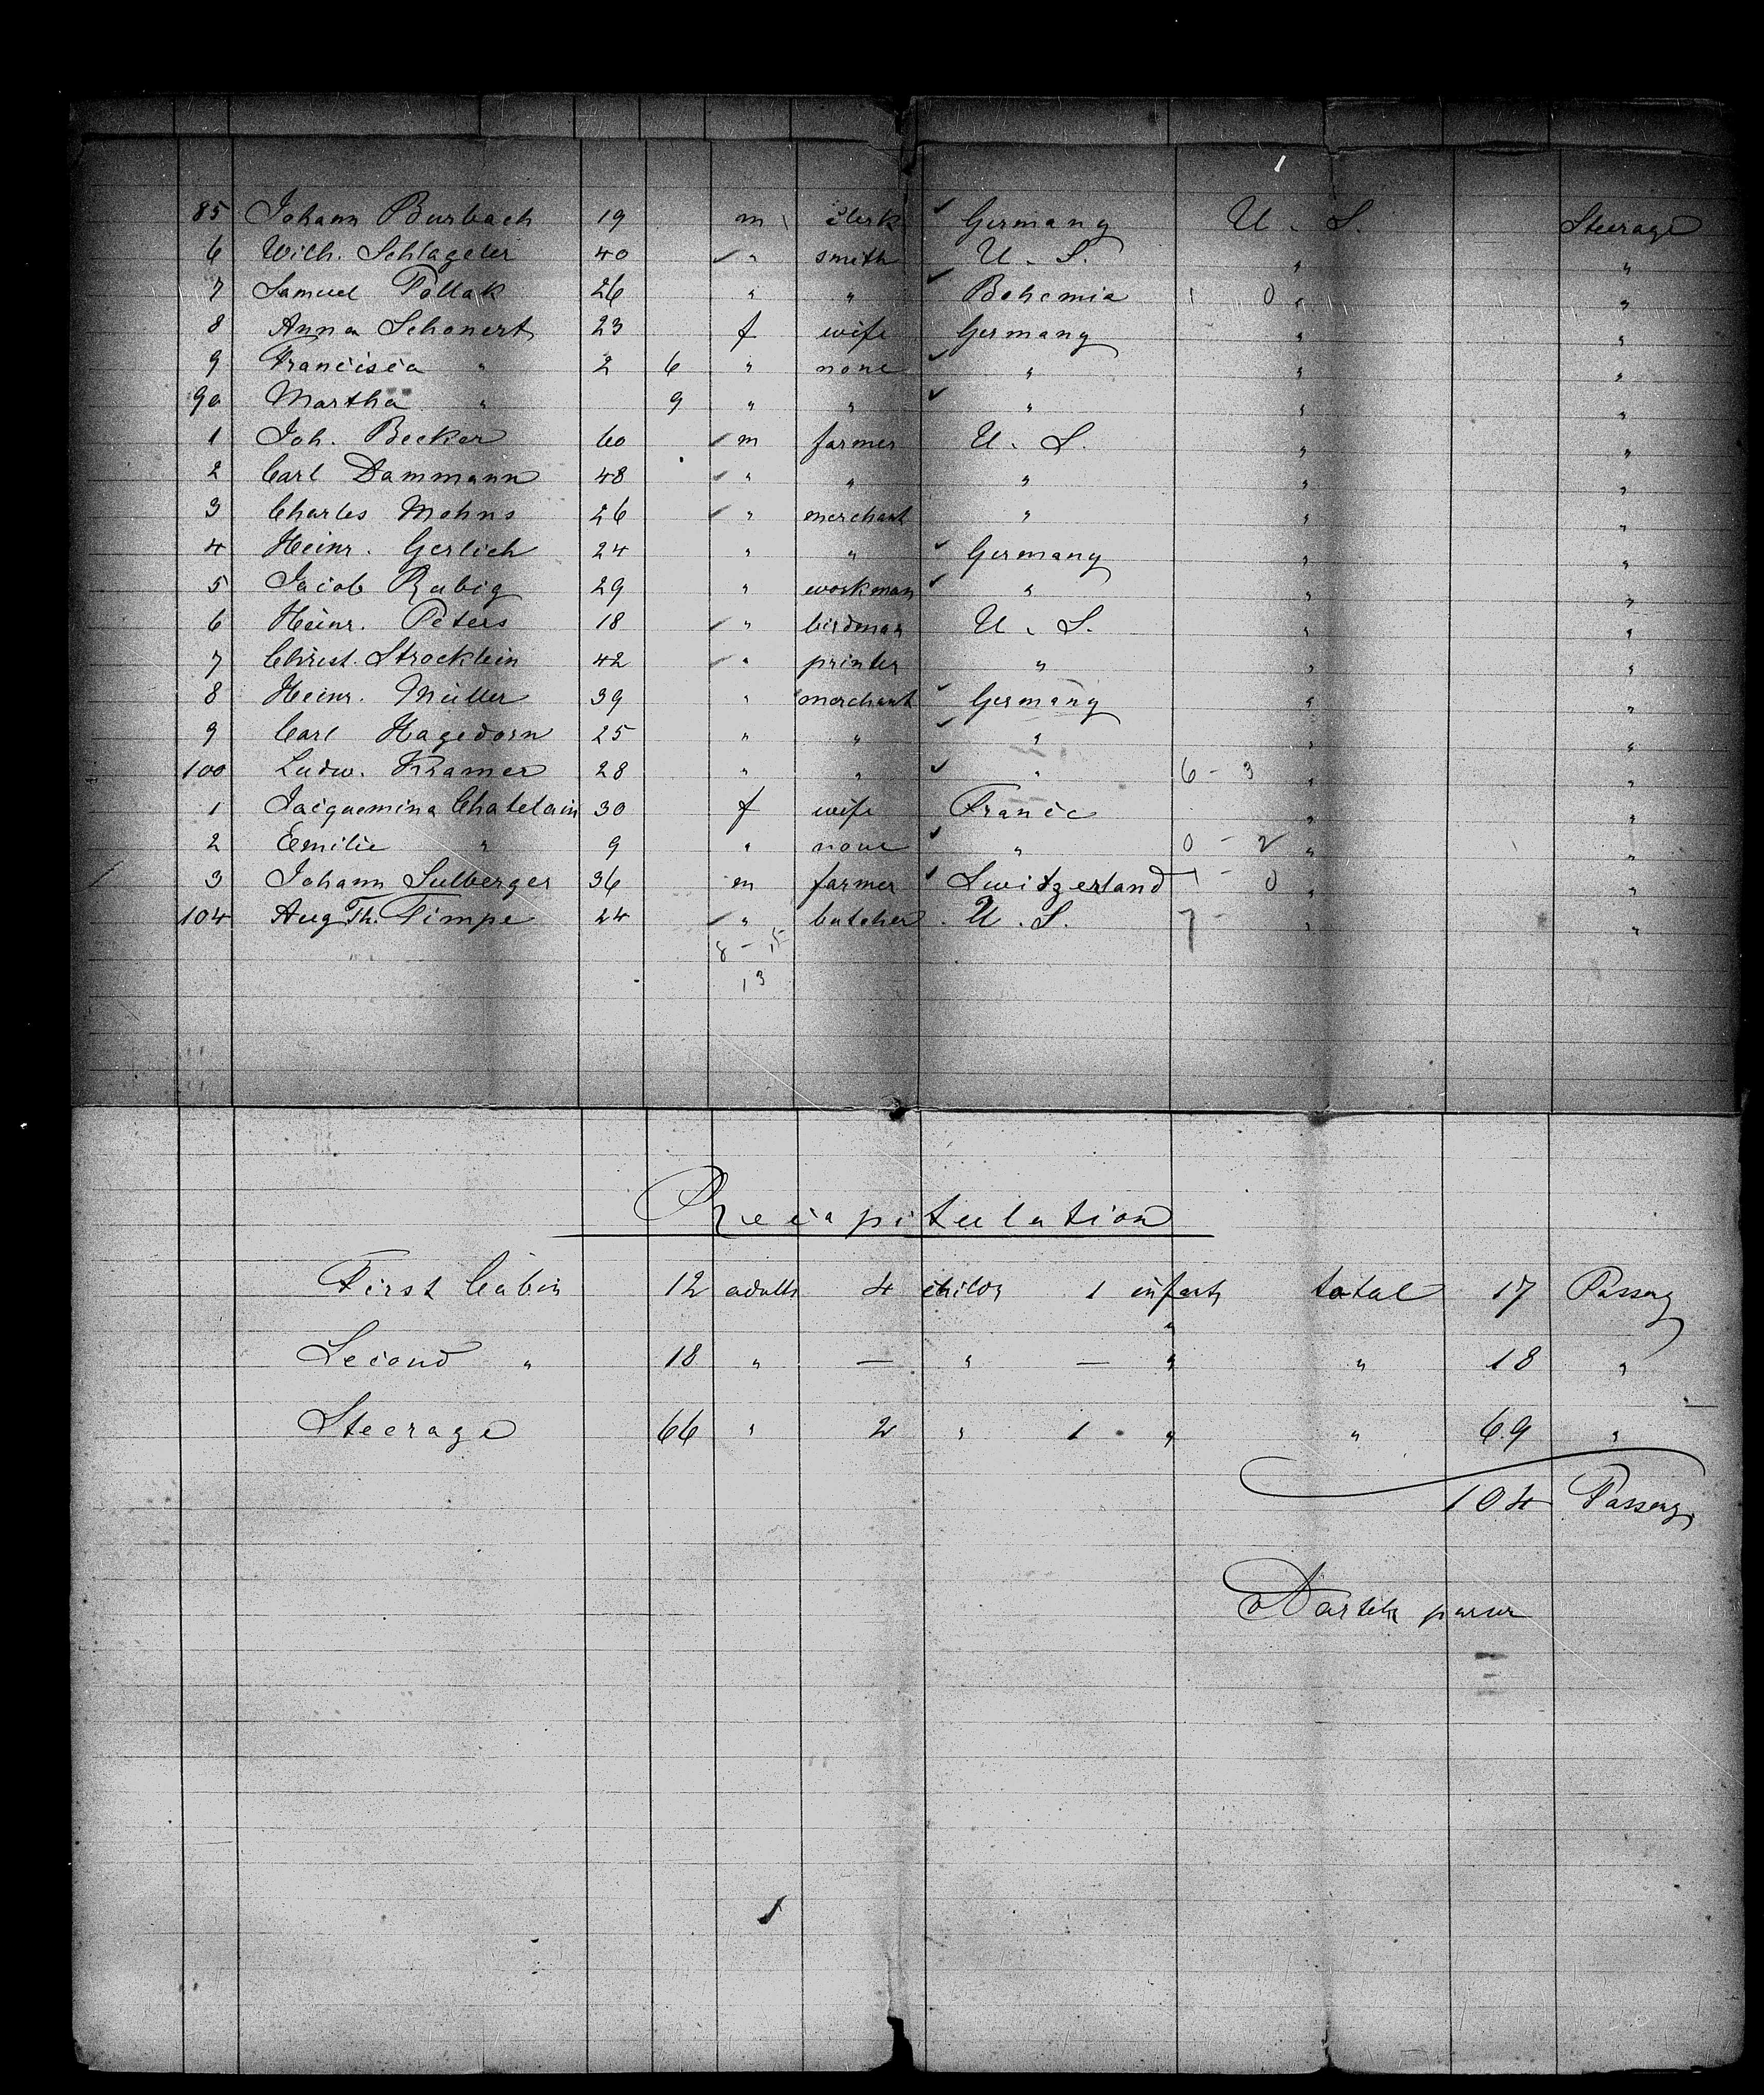 85 Johann Burbach 19 m clerk ✓ Germany U. S. Steerage
6 Wilh. Schlageter 40 ✓ " smith U. S. " "
7 Samuel Pollak 26 " " ✓ Bohemia 1 0 " "
8 Anna Schonert 23 f wife Germany " "
9 Francisca " 2 6 " none ✓ " " "
90 Martha " 9 " " ✓ " " "
1 Joh. Becker 60 ✓ m farmer U. S. " "
2 Carl Dammann 48 ✓ " " " " "
3 Charles Mohns 26 ✓ " merchant " " "
4 Heinr. Gerlich 24 " " ✓ Germany " "
5 Jacob Rubig 29 " workman ✓ " " "
6 Heinr. Peters 18 ✓ " birdman U. S. " "
7 Christ. Strocklein 42 ✓ " printer " " "
8 Heinr. Müller 39 " merchant ✓ Germany " "
9 Carl Hagedorn 25 " " ✓ " " "
100 Ludw. Kramer 28 " " ✓ " 6 - 3 " "
1 Jacquemina Chatelain 30 f wife France " "
2 Emilie " 9 " none ✓ " 0 - 2 " "
3 Johann Sulberger 36 m farmer ✓ Switzerland 1 - 0 " "
104 Aug. Th. Timpe 24 ✓ " butcher U. S. 7 - " "
8 - 5
13
Recapitulation
First Cabin 12 adults 4 childr 1 infants total 17 Passeng
Second " 18 " — " — " " 18 "
Steerage 66 " 2 " 1 " " 69 "
104 Passeng
purser